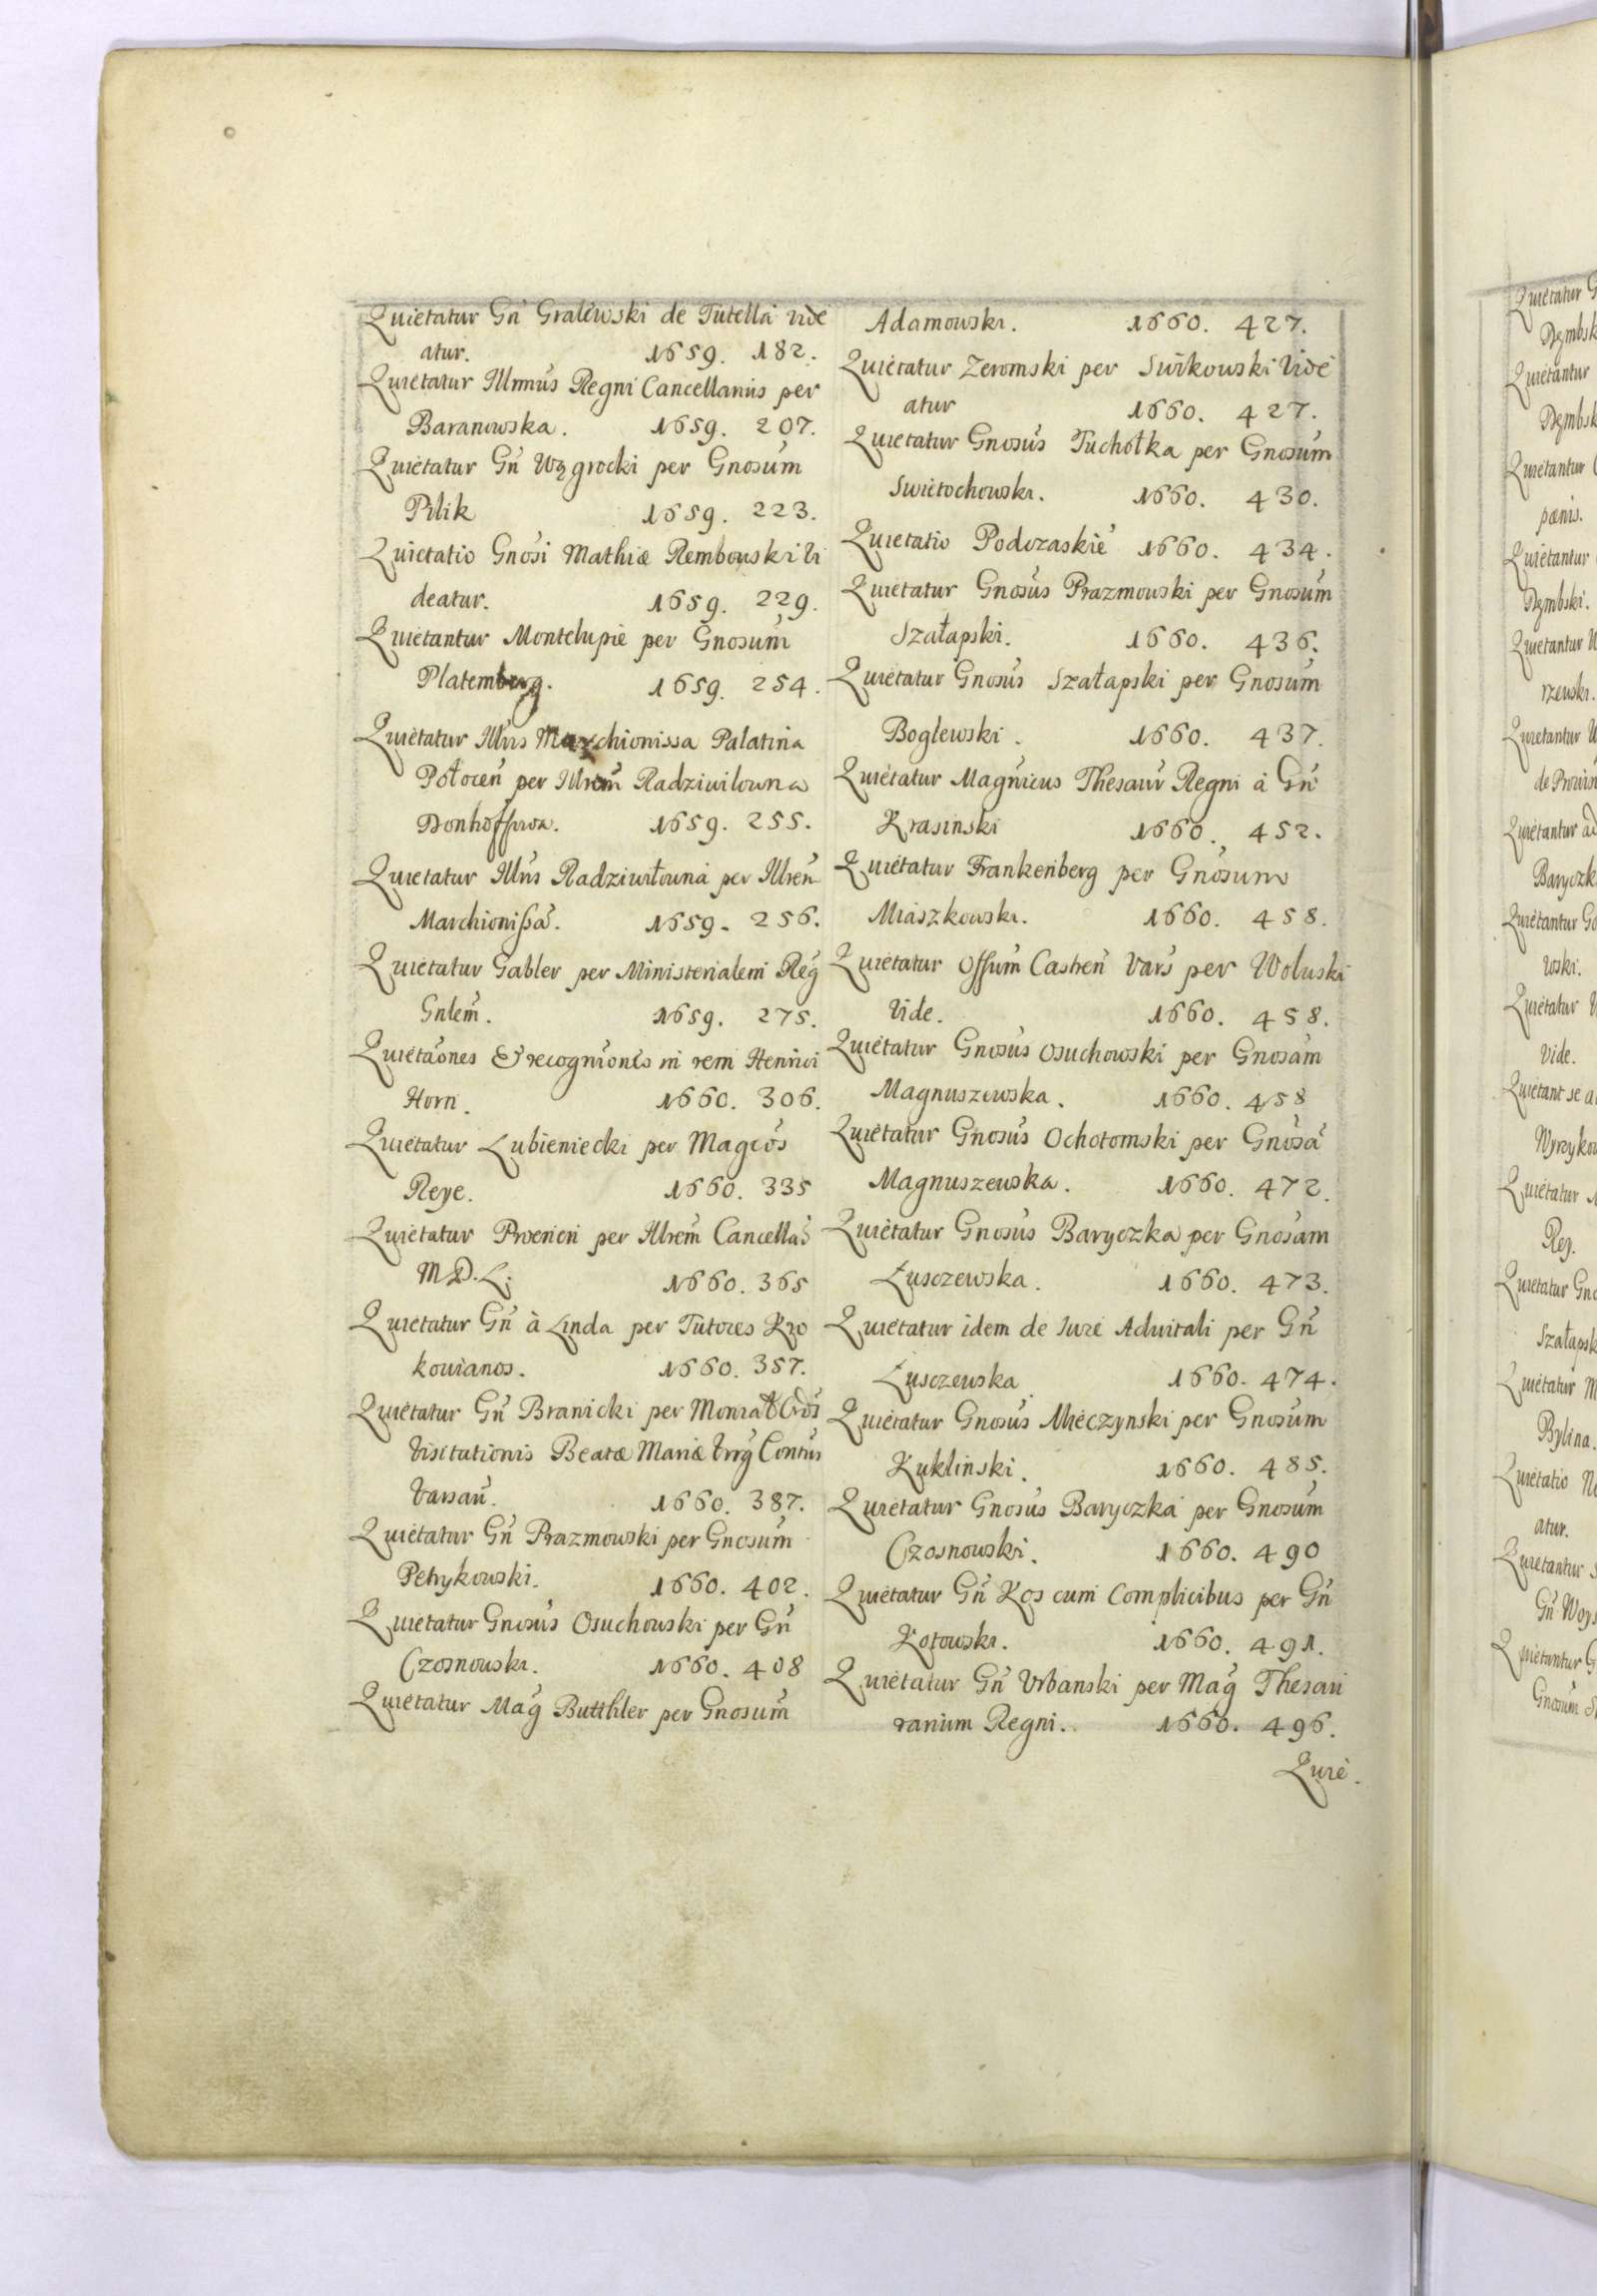 Quietatur Gń Gralewski de Tutella vide
atur. 1659. 182.
Quietatur Illmus Regni Cancellarius per
Baranowska. 1659. 207.
Quietatur Gń Wzgrocki per Gnosum
Pilik 1659. 223.
Quietatio Gnosi Mathiæ Rembowski vi
deatur. 1659. 229.
Quietantur Montelupie per Gnosum
Platemberg. 1659. 254.
Quietatur Illris Marchionissa Palatina
Połoceń per Illrem Radziwilowna
1659. 255.
Quietatur Illris Radziwiłowna per Illrem
Marchionissa. 1659. 256.
Quietatur Gabler per Ministerialem Reg
Gnlem. 1659. 275.
Quietaones & recogniones in rem Henrici
Horn. 1660. 306.
Quietatur Lubieniecki per Magcos
Reye. 1660. 335
Quietatur per Illrem Cancella
M D. L. 1660. 365
Quietatur Gń à Linda per Tutores Kro
kowianos. 1660. 357.
Quietatur Gń Branicki per
Visitationis Beatæ Mariæ Virg Contus
Varsau. 1660. 387.
Quietatur Gń Prazmowski per Gnosum
Petrykowski. 1660. 402.
Quietatur Gnosus Osuchowski per Gń
Czosnowski. 1660. 408
Quietatur Mag Butthler per Gnosum
Adamowski. 1660. 427.
Quietatur Zeromski per Swikowski Vide
atur 1660. 427.
Quietatur Gnosus Tuchołka per Gnosum
Swietochowski. 1660. 430.
Quietatio Podczaskie 1660. 434.
Quietatur Gnosus Prazmowski per Gnosum
Szałapski. 1660. 436.
Quietatur Gnosus Szałapski per Gnosum
Boglewski. 1660. 437.
Quietatur Magnicus Thesaur Regni à Gń
Krasinski 1660. 452.
Quietatur Frankenberg per Gnosum
Miaszkowski. 1660. 458.
Quietatur Offum Castren Vars per Woluski
Vide. 1660. 458.
Quietatur Gnosus Osuchowski per Gnosam
Magnuszewska. 1660. 458
Quietatur Gnosus Ochotomski per Gnosa
Magnuszewska. 1660. 472.
Quietatur Gnosus Baryczka per Gnosam
Łusczewska. 1660. 473.
Quietatur idem de Iure Advitali per Gń
Łusczewska 1660. 474.
Quietatur Gnosus Mieczynski per Gnosum
Kuklinski. 1660. 485.
Quietatur Gnosus Baryczka per Gnosum
Czosnowski. 1660. 490
Quietatur Gń Kos cum Complicibus per Gń
Kotowski. 1660. 491.
Quietatur Gń Urbanski per Mag Thesau
rarium Regni. 1660. 496.
Quie.